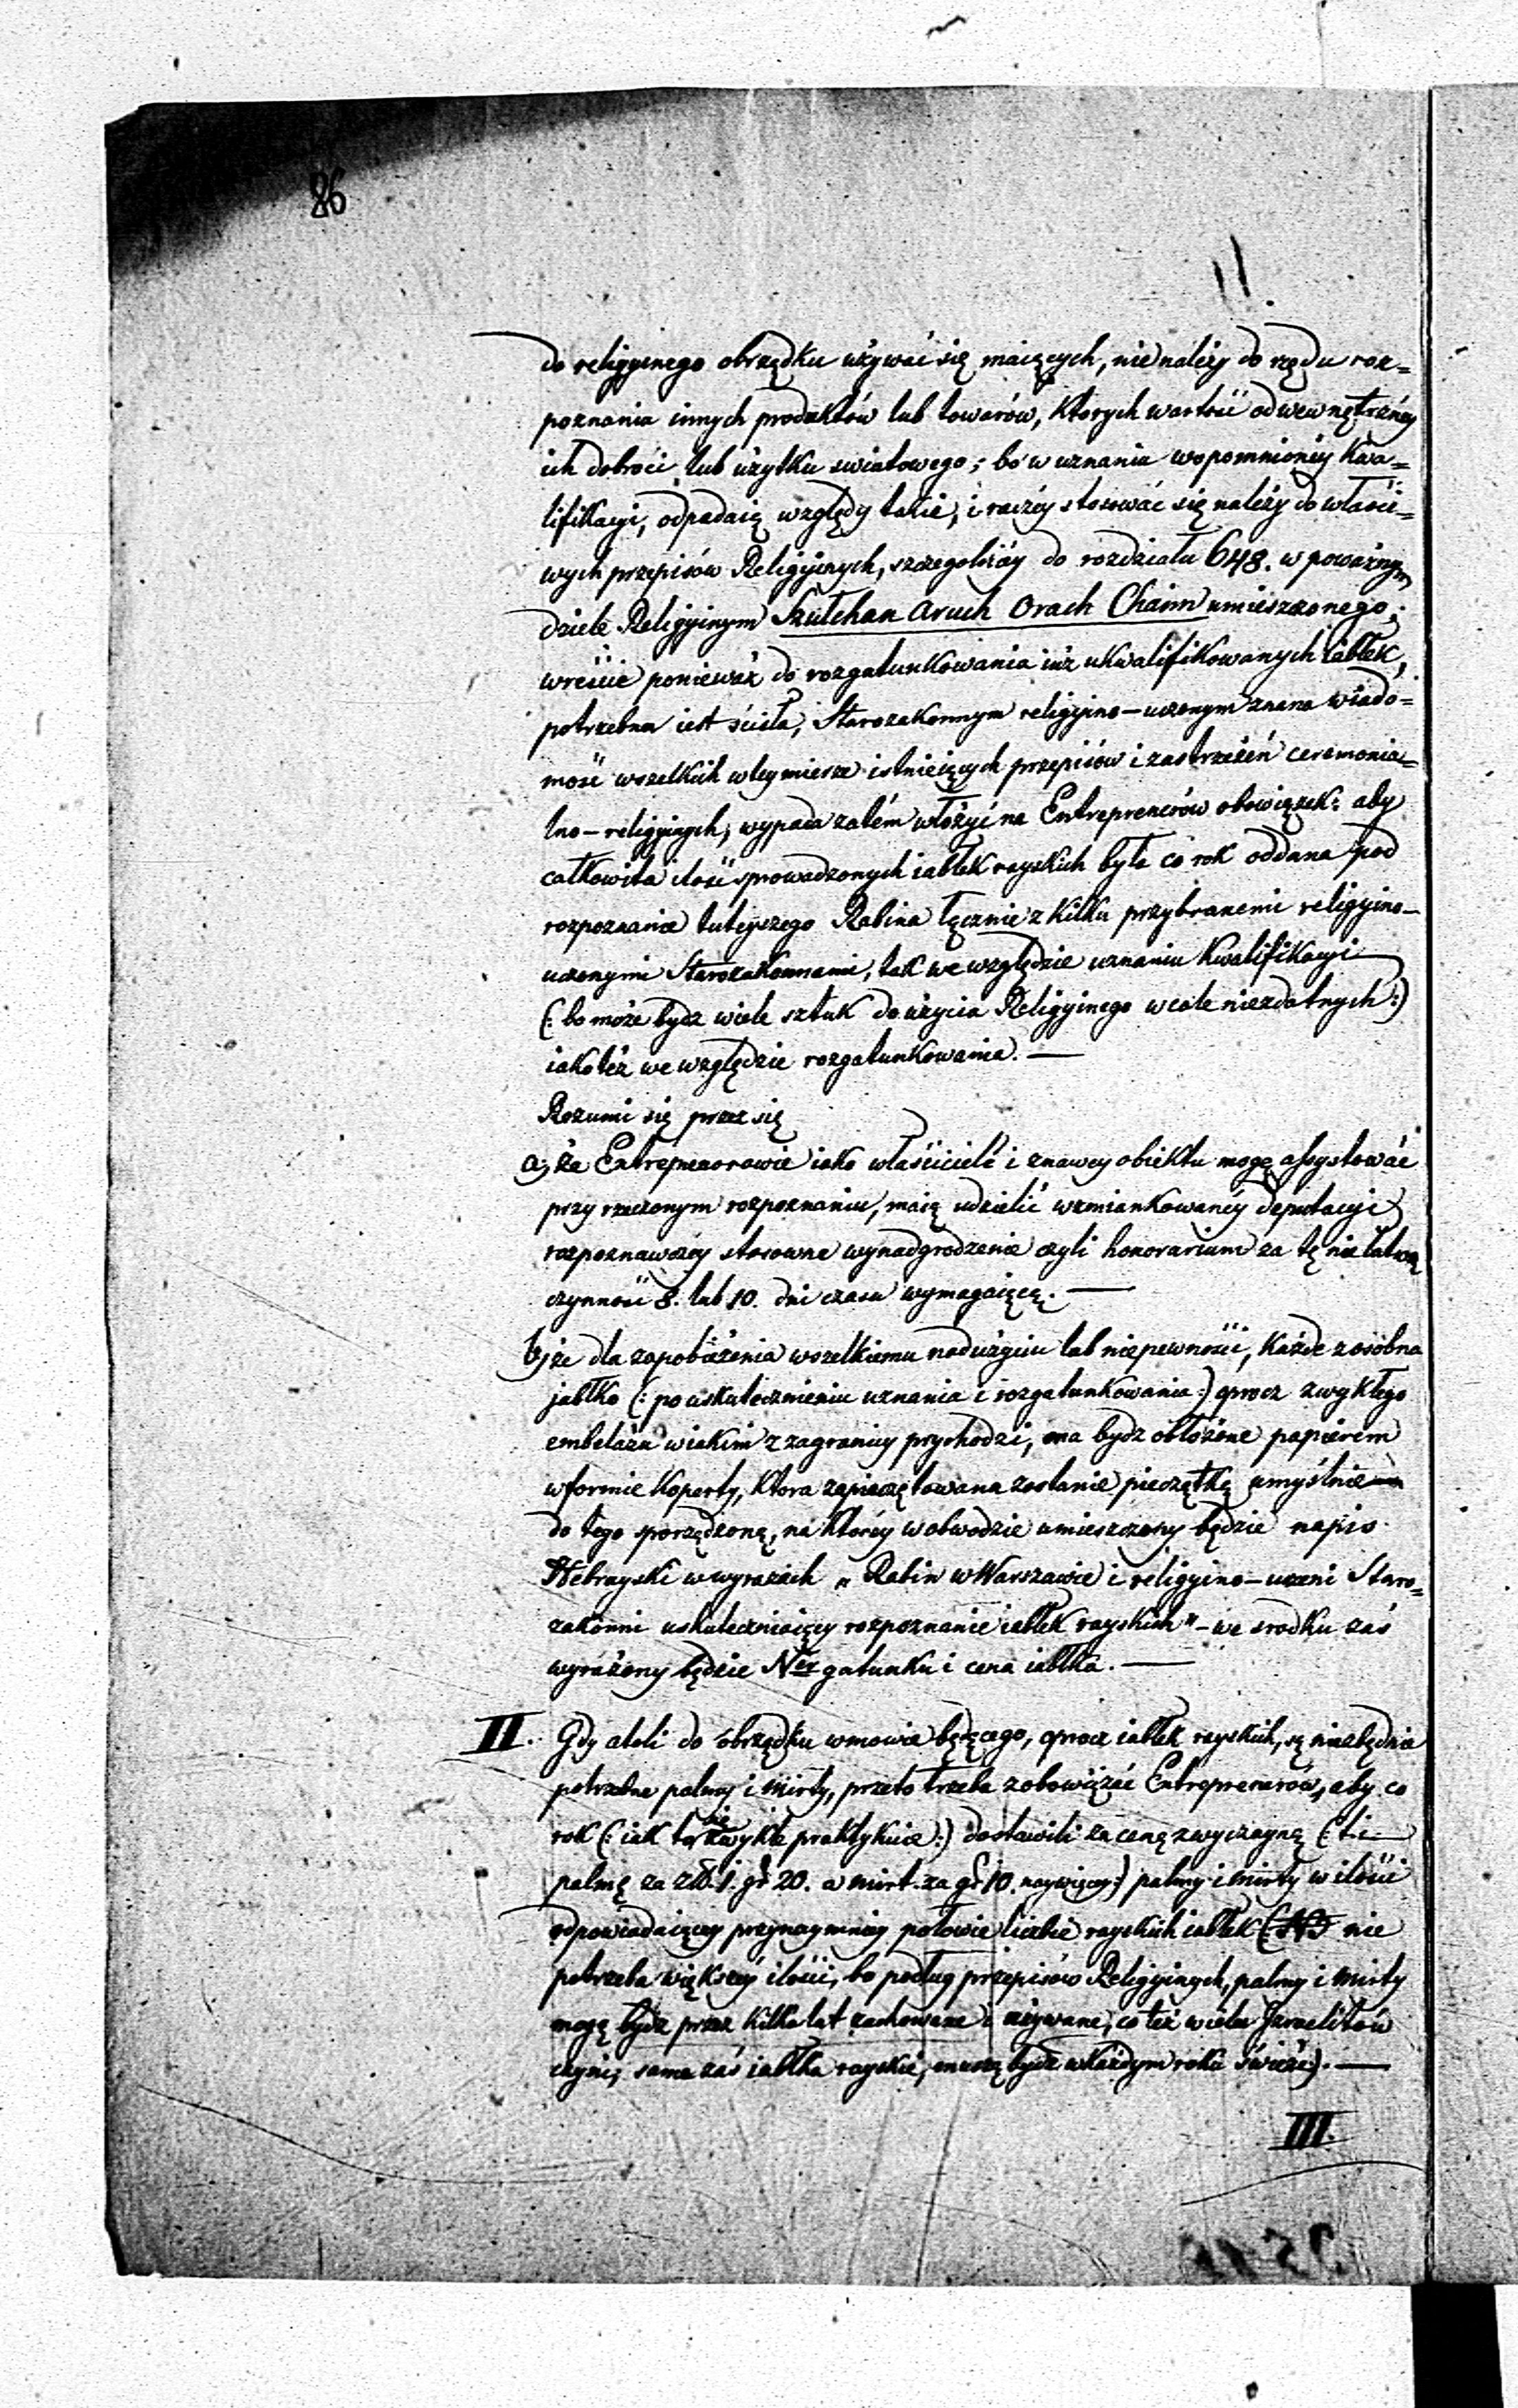 86
11.
do religyinego obrządku używać się maiących, nie należy do rzędu roz=
poznania innych produktów lub towarów, których wartość od wewnętrznéy
ich dobroci lub użytku swiatowego; bo w uznaniu wspomnionéy kwa=
lifikacyi, odpadaią względy takie, i raczéy stosować się należy do właści=
wych przepisów Religyinych, szczegolniéy do rozdziału 648. w poważnym
dziele Religyinym Szulchan Aruch Orach Chaim umieszczonego;
wreście ponieważ do rozgatunkowania iuż ukwalifikowanych iabłek,
potrzebna iest ścisła, Starozakonnym religyino-uczonym znana wiado=
mość wszelkich w tey mierze istnieiących przepisów i zastrzeżeń ceremonia=
lno-religyinych, wypada zatém włożyć na Entreprenerów obowiązek: aby
całkowita ilość sprowadzonych iabłek rayskich była co rok oddana pod
rozpoznanie tuteyszego Rabina łącznie z kilku przybranemi religyino-
uczonymi Starozakonnami, tak we względzie uznania kwalifikacyi
(: bo może bydz wiele sztuk do użycia Religyinego wcale niezdatnych :)
iakoteż we względzie rozgatunkowania. —
Rozumi się przez się
a, że Entreprenerowie iako właściciele i znawcy obiektu mogą assystować
przy rzeczonym rozpoznaniu, maią udzielić wzmiankowanéy deputacyi
rozpoznawczéy stosowne wynadgrodzenie czyli honorarium za tę nie łatwą
czynność 8. lub 10. dni czasu wymagaiącą. —
b, że dla zapobieżenia wszelkiemu nadużyciu lub niepewności, każde z osobna
jabłko (: po uskutecznieniu uznania i rozgatunkowania :) oprocz zwykłego
embelażu w iakim z zagranicy przychodzi, ma bydz obłożone papierem
w formie koperty, która zapieczętowana zostanie pieczątką umyślnie
do tego sporządzoną, na któréy w obwodzie umieszczony będzie napis
Hebrayski w wyrazach „Rabin w Warszawie i religyino-uczeni Staro=
zakonni uskuteczniaiący rozpoznanie iabłek rayskich" – we srodku zaś
wyrażony będzie Ner gatunku i cena iabłka. —
II. Gdy atoli do obrządku w mowie będącego, oprocz iabłek rayskich, są niezbędnie
potrzebne palmy i mirty, przeto trzeba zobowiązać Entreprenerów, aby co
rok (: iak to się zwykle praktykuie :) dostawili za cenę zwyczayną (: t. i.
palmę za zł. 1. gr 20. a mirt za gr 10. naywięcey :) palmy i mirty w ilości
odpowiadaiącey przynaymniey połowie liczbie rayskich iabłek ( nie
potrzeba większéy ilości, bo podług przepisów Religyinych, palmy i mirty
mogą bydz przez kilka lat zachowane i używane, co też wielu Izraelitów
czyni, same zaś iabłka rayskie, muszą bydz w każdym roku świeże). —
III.